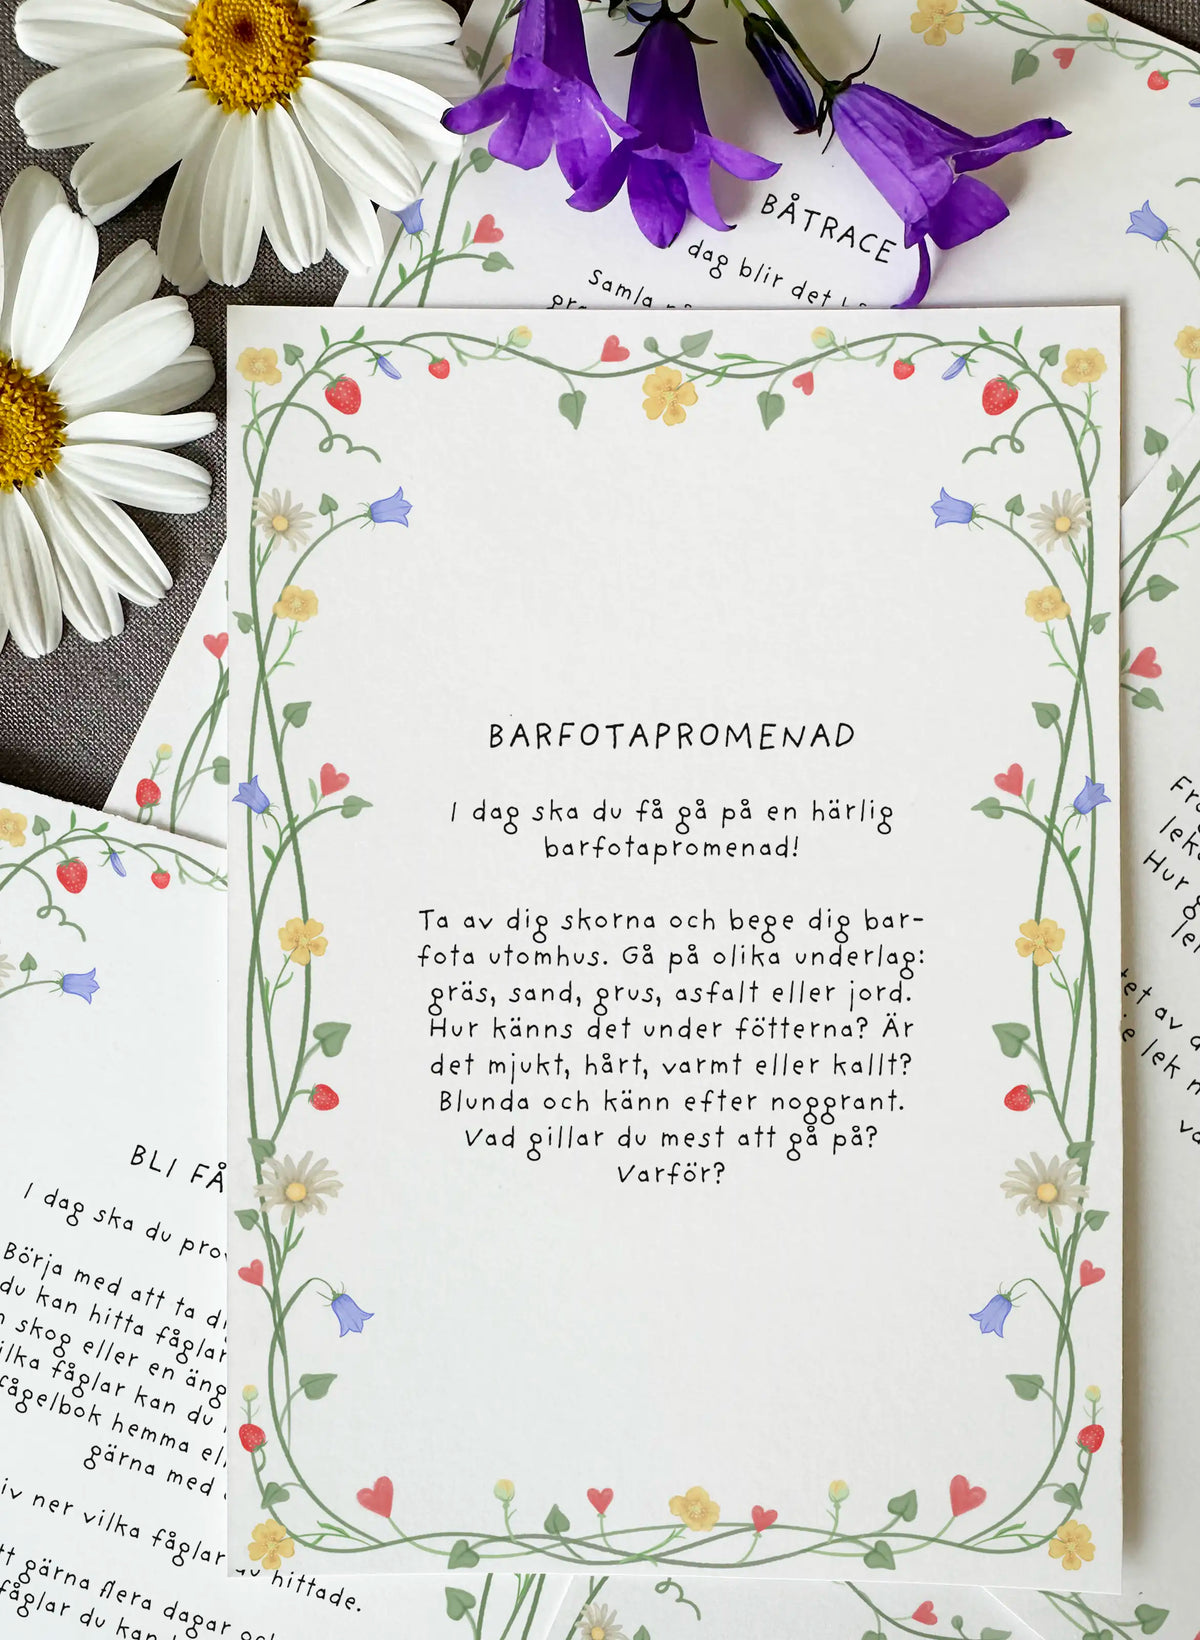 BÅTRACE
dag blir det
Samla
BARFOTAPROMENAD
I dag ska du få gå på en härlig
barfotapromenad!
Ta av dig skorna och bege dig bar-
fota utomhus. Gå på olika underlag:
gräs, sand, grus, asfalt eller jord.
Hur känns det under fötterna? Är
det mjukt, hårt, varmt eller kallt?
Blunda och känn efter noggrant.
Vad gillar du mest att gå på?
Varför?
BLI FÅ
I dag ska du
Börja med att ta
du kan hitta fåglar
skog eller en äng
fåglar kan du
fågelbok hemma
gärna med
ner vilka fåglar du hittade.
gärna flera dagar
fåglar du kan
Hur
av
lek